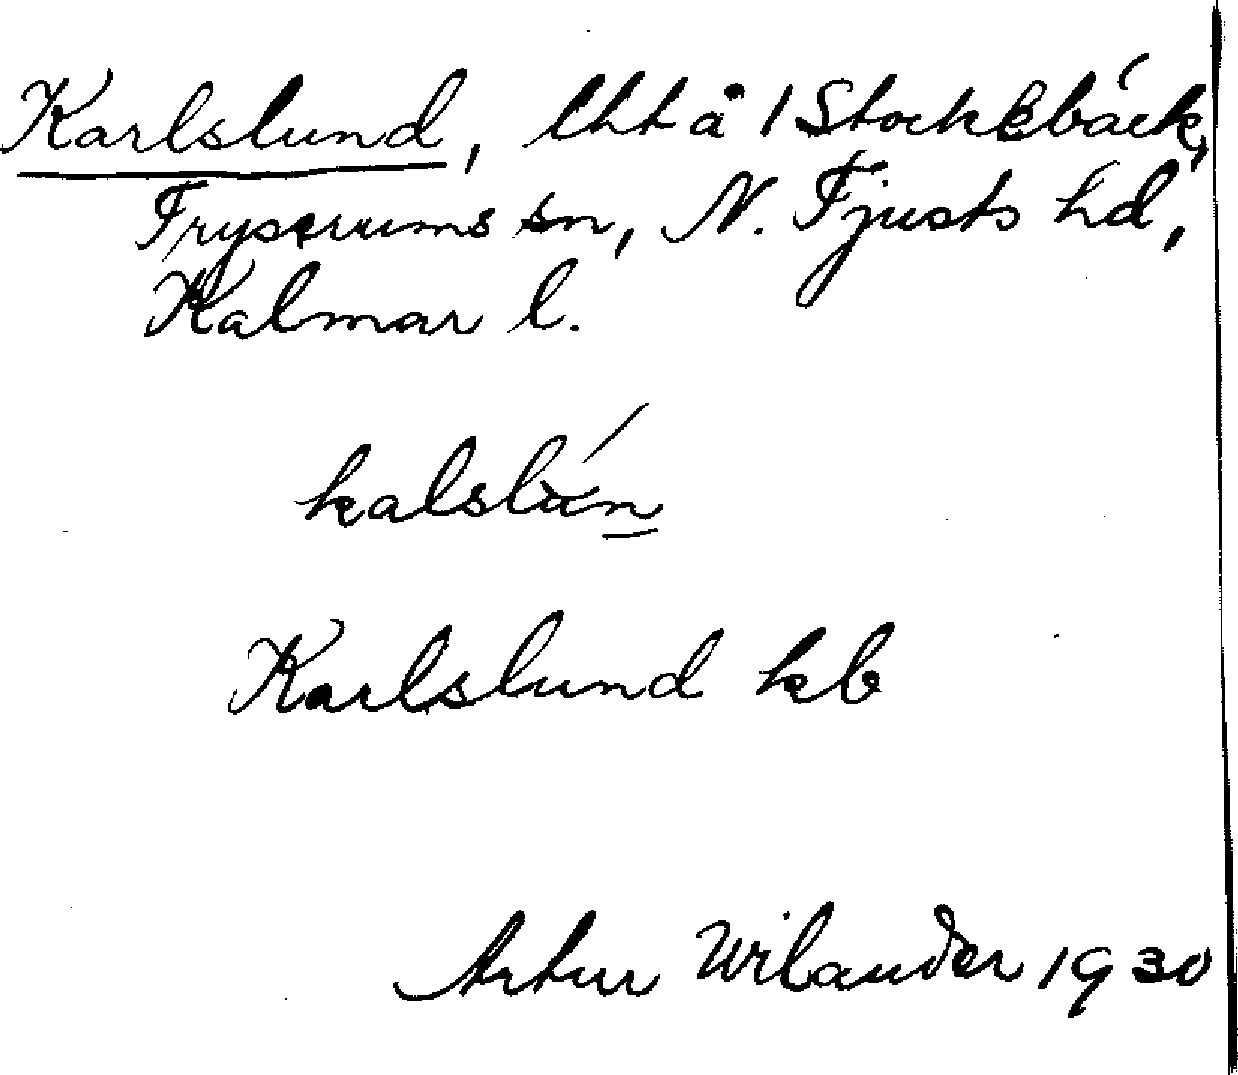 Karlslund, lht å 1 Stockebäck,
Tryserums sn, N. Tjusts hd,
Kalmar l.
kalslún
Karlslund kb
Artur Wilander 1930